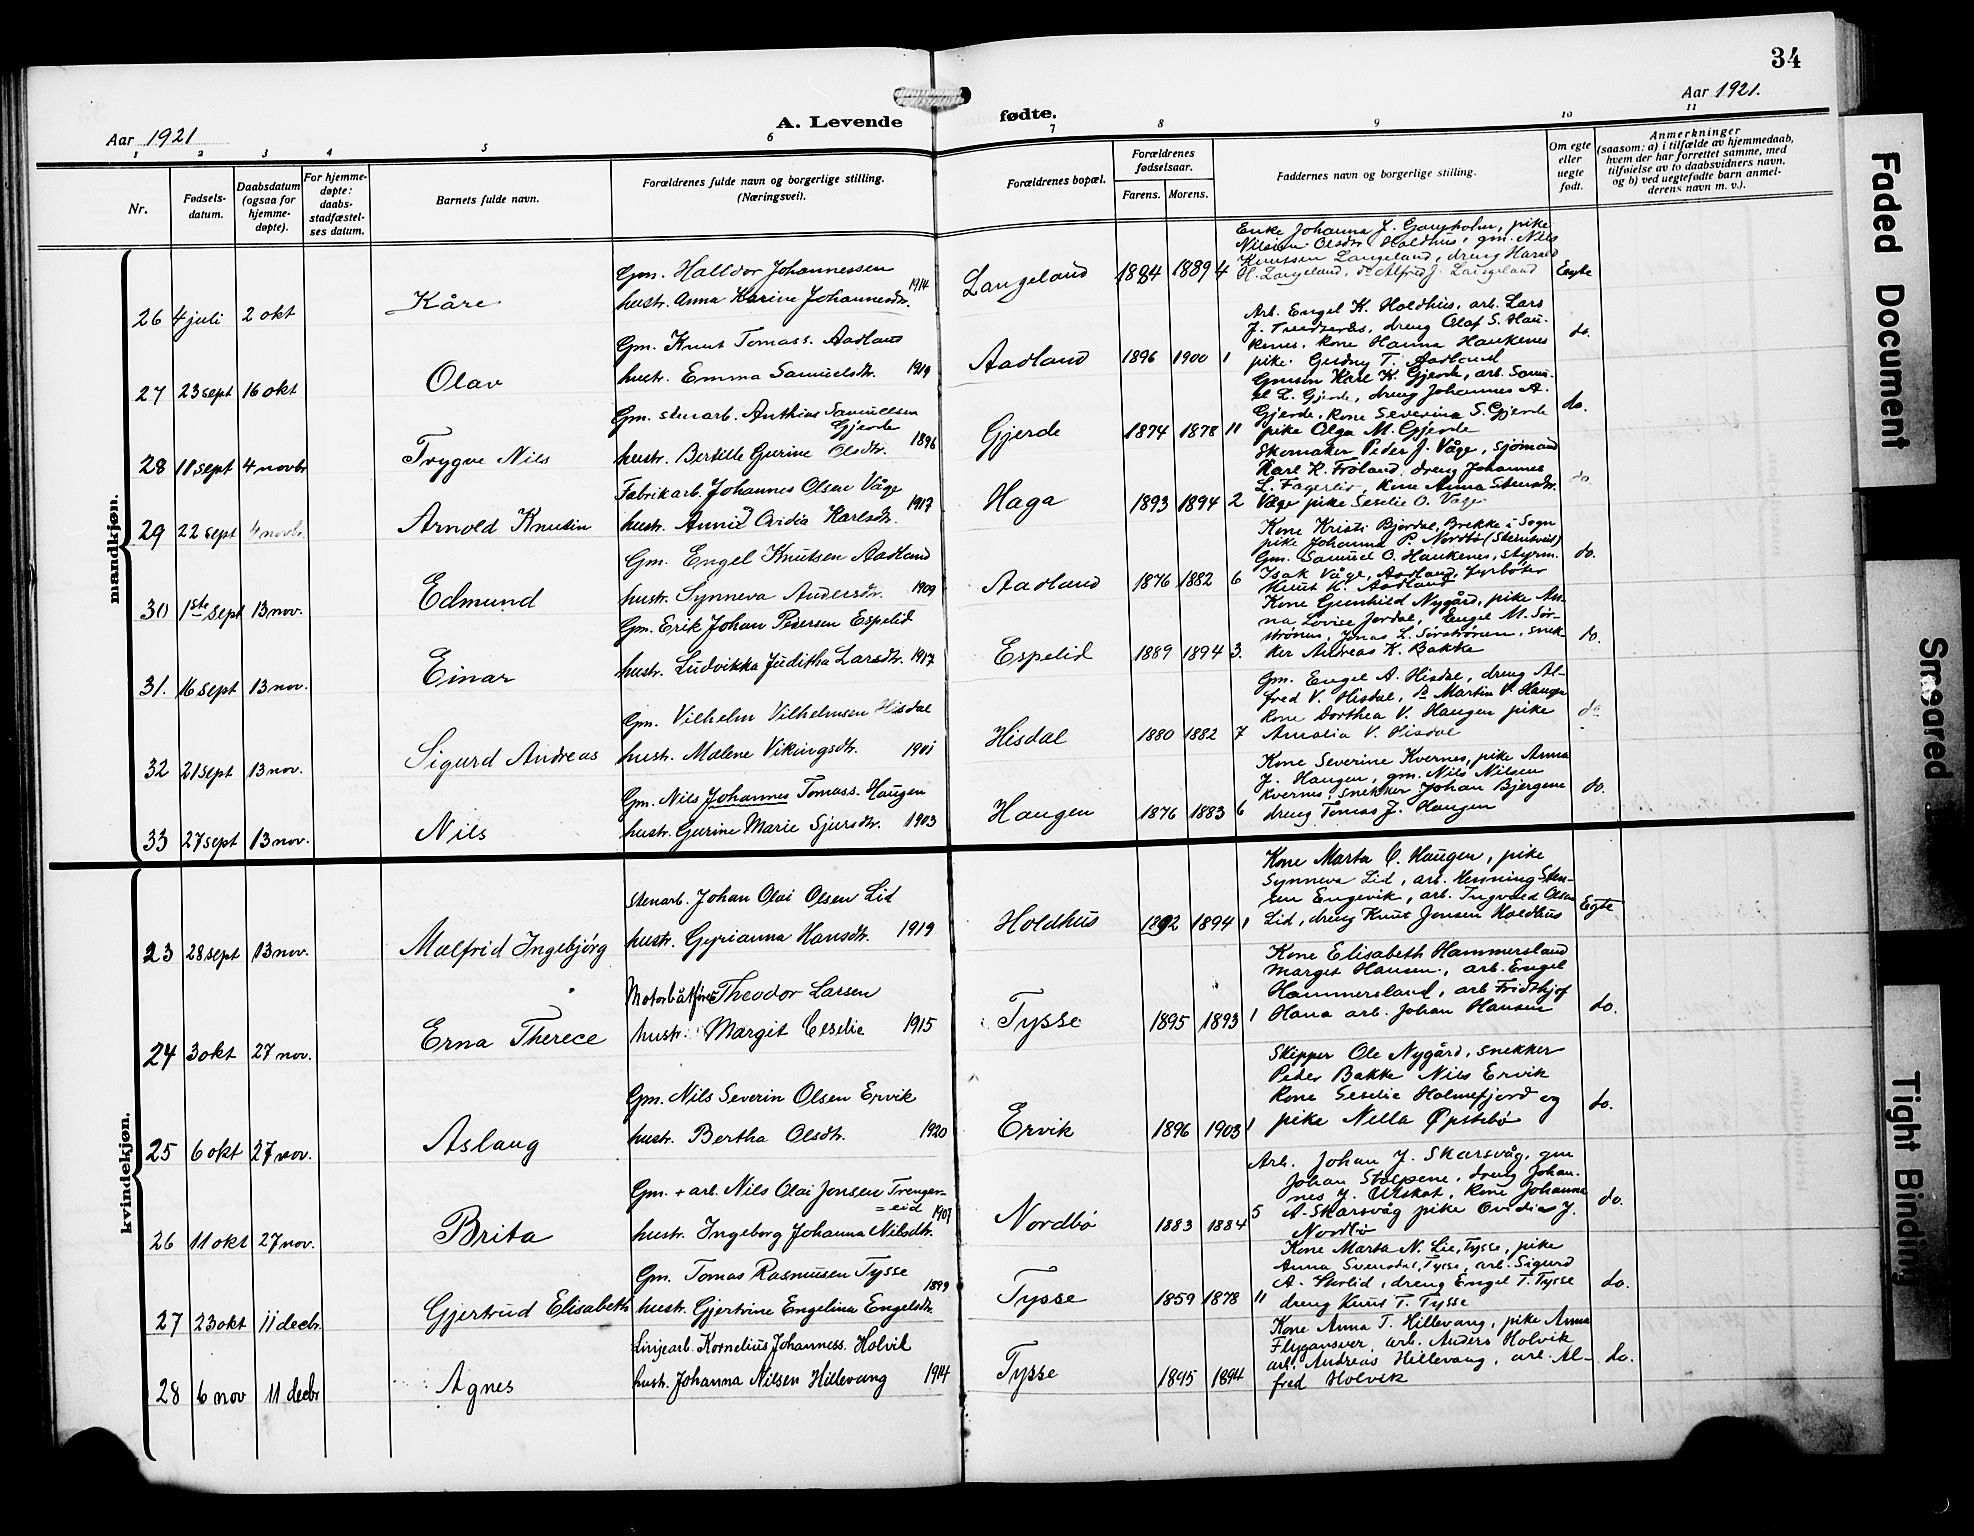 34
Aar 1921
A. Levende
fødte.
Aar 1921.
1 2 3 4 5 6 7 8 9 10 11
Nr.
Fødsels-
datum.
Daabsdatum
(ogsaa for
hjemme-
døpte).
For hjemme-
døpte:
daabs-
stadfæstel-
ses datum.
Barnets fulde navn.
Forældrenes fulde navn og borgerlige stilling.
(Næringsvei).
Forældrenes bopæl.
Forældrenes
fødselsaar.
Farens. Morens.
Faddernes navn og borgerlige stilling.
Om egte
eller
uegte
født.
Anmerkninger
(saasom: a) i tilfælde av hjemmedaab,
hvem der har forrettet samme, med
tilføielse av to daabsvidners navn,
og b) ved uegtefødte barn anmel-
derens navn m. v.).
mandkjøn.
26 4 juli 2 okt Kåre
Gm. Halldor Johannessen
hustr. Anna Karine Johannesdr. 1914
Langeland 1884 1889 4
Enke Johanna J. pike
Olsdr. Holdhus, gm. Nils
Knutssen Langeland, dreng Harald
H. Langeland, do Alfred J. Langeland
Egte
27 23 sept 16 okt Olav
Gm. Knut Tomass. Aadland
hustr. Emma Samuelsdtr. 1919
Aadland 1896 1900 1
Arb. Engel K. Holdhus, arb. Lars
J. dreng Olaf S. Hau-
kenes, Kone Hanna Haukenes
pike Gudny T. Aadland
do.
28 11 sept 4 novbr Trygve Nils
Gm. stenarb. Anthias Samuelsen
Gjerde
hustr. Bertille Gurine Olsdtr. 1896
Gjerde 1874 1878 11
Gmsøn Karl K. Gjerde, arb. Samu-
el L. Gjerde, dreng Johannes A.
Gjerde, Kone Severina S. Gjerde
pike Olga M. Gjerde
do.
29 22 sept 4 novbr. Arnold Knutsin
Fabrikarb. Johannes Olsen Våge
hustr. Ovidia Karlsdtr. 1917
Haga 1893 1894 2
Skomaker Peder J. Våge, sjømand
Karl K. Frøland, dreng Johannes
L. Fagerlid, Kone Anna Stensdtr.
Våge pike Seselie O. Våge
do.
30 1ste sept 13 nov. Edmund
Gm. Engel Knutsen Aadland
hustr. Synneva Andersdtr. 1909
Aadland 1876 1882 6
Kone Kristi Bjordal, Brekke i Sogn
pike Johanna P. Nordbø (Steintveit)
Gm. Samuel O. Haukenes, styrm.
Isak Våge, Aadland, fyrbøter
Knut K. Aadland
do.
31. 16 sept 13 nov. Einar
Gm. Erik Johan Pedersen Espelid
hustr. Ludvikka Juditha Larsdtr. 1917
Espelid 1889 1894 3.
Kone Gunhild Nygård, pike An-
na Lovise Jordal, Engel M. Sør-
strønen, Jonas L. Sørstrønen, snek
ker Andreas K. Bakke
do.
32 21 sept 13 nov. Sigurd Andreas
Gm. Vilhelm Vilhelmsen Hisdal
hustr. Malene Vikingsdtr. 1901
Hisdal 1880 1882 7
Gm. Engel A. Hisdal, dreng Al-
fred V. Hisdal, do Martin V. Haugen
Kone Dorthea V. Haugen pike
Amalia V. Hisdal
do
33 27 sept 13 nov. Nils
Gm. Nils Johannes Tomass. Haugen
hustr. Gurine Marie Sjursdtr. 1903
Haugen 1876 1883 6
Kone Severine Kvernes, pike Anna
J. Haugen, gm. Nils Nilsen
Kvernes, snekker Johan Bjergene
dreng Tomas J. Haugen
do.
kvindekjøn.
23 28 sept 13 nov. Malfrid Ingebjörg
Stenarb. Johan Olai Olsen Lid
hustr. Gyrianna Hansdtr. 1919
Holdhus 1892 1894 1
Kone Marta O. Haugen, pike
Synneva Lid, arb. Henning Sten-
sen Engevik, arb. Ingvald Olsen
Lid, dreng Knut Jensen Holdhus
Egte
24 3 okt 27 nov. Erna Therece
Motorbåtfører Theodor Larsen
hustr. Margit Ceselie 1915
Tysse 1895 1893 1
Kone Elisabeth Hammersland
Marget Hansen, arb. Engel
Hammersland, arb Fridthjof
Hana arb. Johan Hansen
do.
25 6 okt 27 nov. Aslaug
Gm. Nils Severin Olsen Ervik
hustr. Bertha Olsdtr. 1920
Ervik 1896 1903 1
Skipper Ole Nygård, snekker
Peder Bakke Nils Ervik
Kone Seselie Holmefjord og
pike Nella Øpstebø
do.
26 11 okt 27 nov. Brita
Gm. + arb. Nils Olai Jonsen Trenger-
=eid
hustr. Ingeborg Johanna Nilsdtr. 1907
Nordbø 1883 1884 5
Arb. Johan J. Skarsvåg, gm
Johan Stolpene, dreng Johan-
nes J. Ulskot, Kone Johanne
A. Skarsvåg pike Ovidia J.
Nordbø
do.
27 23 okt 11 decbr. Gjertrud Elisabeth
Gm. Tomas Rasmusen Tysse
hustr. Gjertrine Engelina Engelsdtr. 1899
Tysse 1859 1878 11
Kone Marta N. Lie, Tysse, pike
Anna Svensdal, Tysse, arb. Sigurd
A. dreng Engel T. Tysse
dreng Knut T. Tysse
do.
28 6 nov 11 decbr Agnes
Linjearb. Kornelius Johanness. Holvik
hustr. Johanna Nilsen Hillevang 1914
Tysse 1845 1894
Kone Anna T. Hillevang, pike Anna
Flygansver, arb. Anders Holvik
arb. Andreas Hillevang, arb. Al-
fred Holvik
do.
Faded Document
Smeared
Tight Binding